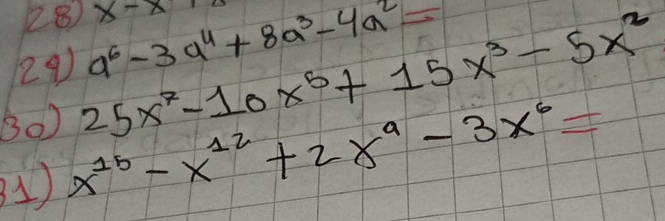 28) x - x
29) a⁶ - 3a⁴ + 8a³ - 4a² =
30) 25x⁷ - 10x⁵ + 15x³ - 5x²
31) x¹⁵ - x¹² + 2x⁹ - 3x⁶ =